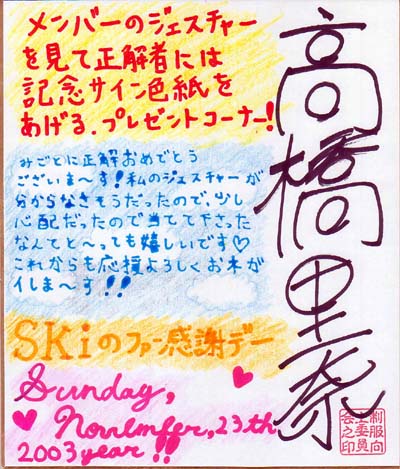 メンバーのジェスチャー
を見て正解者には
記念サイン色紙を
あげる、プレゼントコーナー!
みごとに正解おめでとう
ございま〜す!私のジェスチャーが
分からなさそうだったので、少し
心配だったので当てて下さった
なんてと〜っても嬉しいです♡
これからも応援よろしくおネガ
イしま〜す!!
SKiのファン感謝デー
Sunday,
November,23th
2003year!!
高橋里奈
制服向
上委員
会之印